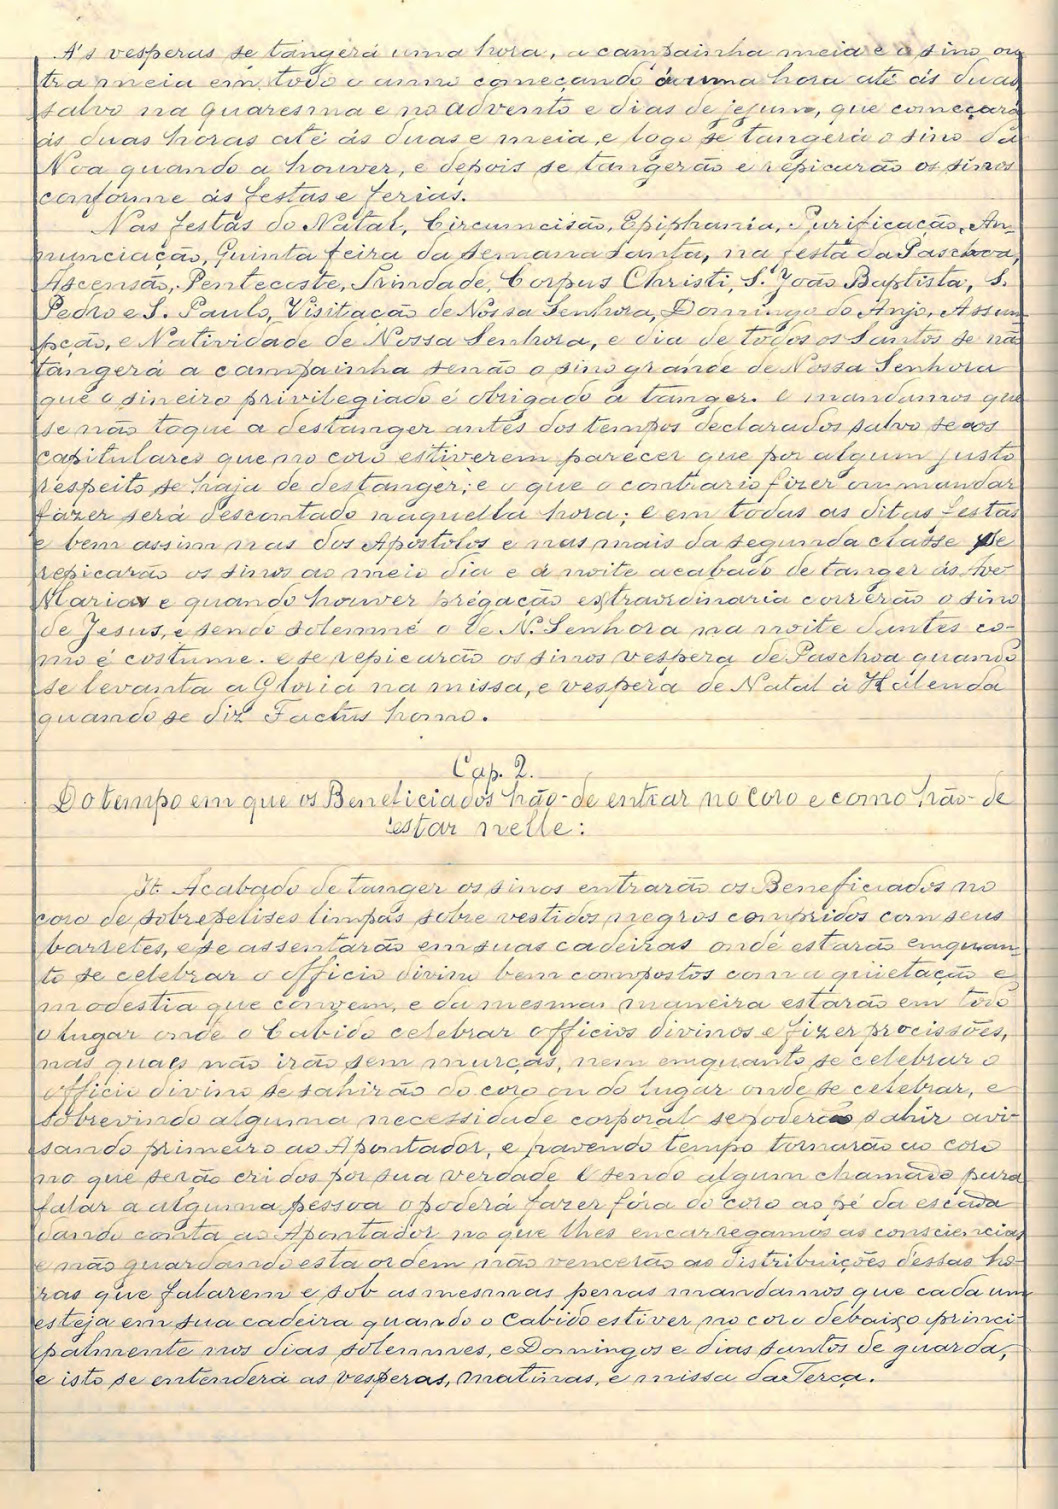 A's vesperas se tangerá uma hora, a campainha meia e o sino ou-
tra meia em todo o anno começando á uma hora até ás duas
salvo na quaresma e no advento e dias de jejum, que começará
ás duas horas até ás duas e meia, e logo se tangerá o sino da
Noa quando a houver, e depois se tangerão e repicarão os sinos
conforme ás festas e ferias.
Nas festas do Natal, Circumcisão, Epiphania, Purificação, An-
nunciação, Quinta feira da Semana Santa, na festa da Paschoa,
Ascensão, Pentecoste, Trindade, Corpus Christi, S. João Baptista, S.
Pedro e S. Paulo, Visitação de Nossa Senhora, Domingo do Anjo, Assum-
pção, e Natividade de Nossa Senhora, e dia de todos os Santos se nã
tangerá a campainha senão o sino grande de Nossa Senhora
que o sineiro privilegiado é obrigado a tanger. e mandamos que
se não toque a destanger antes dos tempos declarados salvo se aos
capitulares que no coro estiverem parecer que por algum justo
respeito se haja de destanger; e o que o contrario fizer ou mandar
fazer será descontado naquella hora; e em todas as ditas festas
e bem assim nas dos Apostolos e nas mais da segunda classe se
repicarão os sinos ao meio dia e á noite acabado de tanger ás Ave
Marias e quando houver prégação extraordinaria correrão o sino
de Jesus, e sendo solemne o de N. Senhora na noite d'antes co-
mo é costume. e se repicarão os sinos vespera de Paschoa quando
se levanta a Gloria na missa, e vespera de Natal á Kalenda
quando se diz Factus homo.
Cap. 2.
Do tempo em que os Beneficiados hão-de entrar no coro e como hão-de
estar nelle:
It. Acabado de tanger os sinos entrarão os Beneficiados no
coro de sobrepelises limpas sobre vestidos negros compridos com seus
barretes, e se assentarão em suas cadeiras onde estarão emquan-
to se celebrar o officio divino bem compostos com a quietação e
modestia que convem, e da mesma maneira estarão em todo
o lugar onde o Cabido celebrar officios divinos e fizer procissões,
nas quaes não irão sem murças, nem emquanto se celebrar o
officio divino se sahirão do coro ou do lugar onde se celebrar, e
sobrevindo alguma necessidade corporal se poderão sahir avi-
sando primeiro ao Apontador, e havendo tempo tornarão ao coro
no que serão cridos por sua verdade e sendo algum chamado para
falar a alguma pessoa o poderá fazer fóra do coro ao pé da escada
dando conta ao Apontador no que lhes encarregamos as consciencias
e não guardando esta ordem não vencerão as distribuições dessas ho-
ras que falarem e sob as mesmas penas mandamos que cada um
esteja em sua cadeira quando o Cabido estiver no coro debaixo princi-
palmente nos dias solemnes, e Domingos e dias santos de guarda,
e isto se entenderá as vesperas, matinas, e missa da Terça.